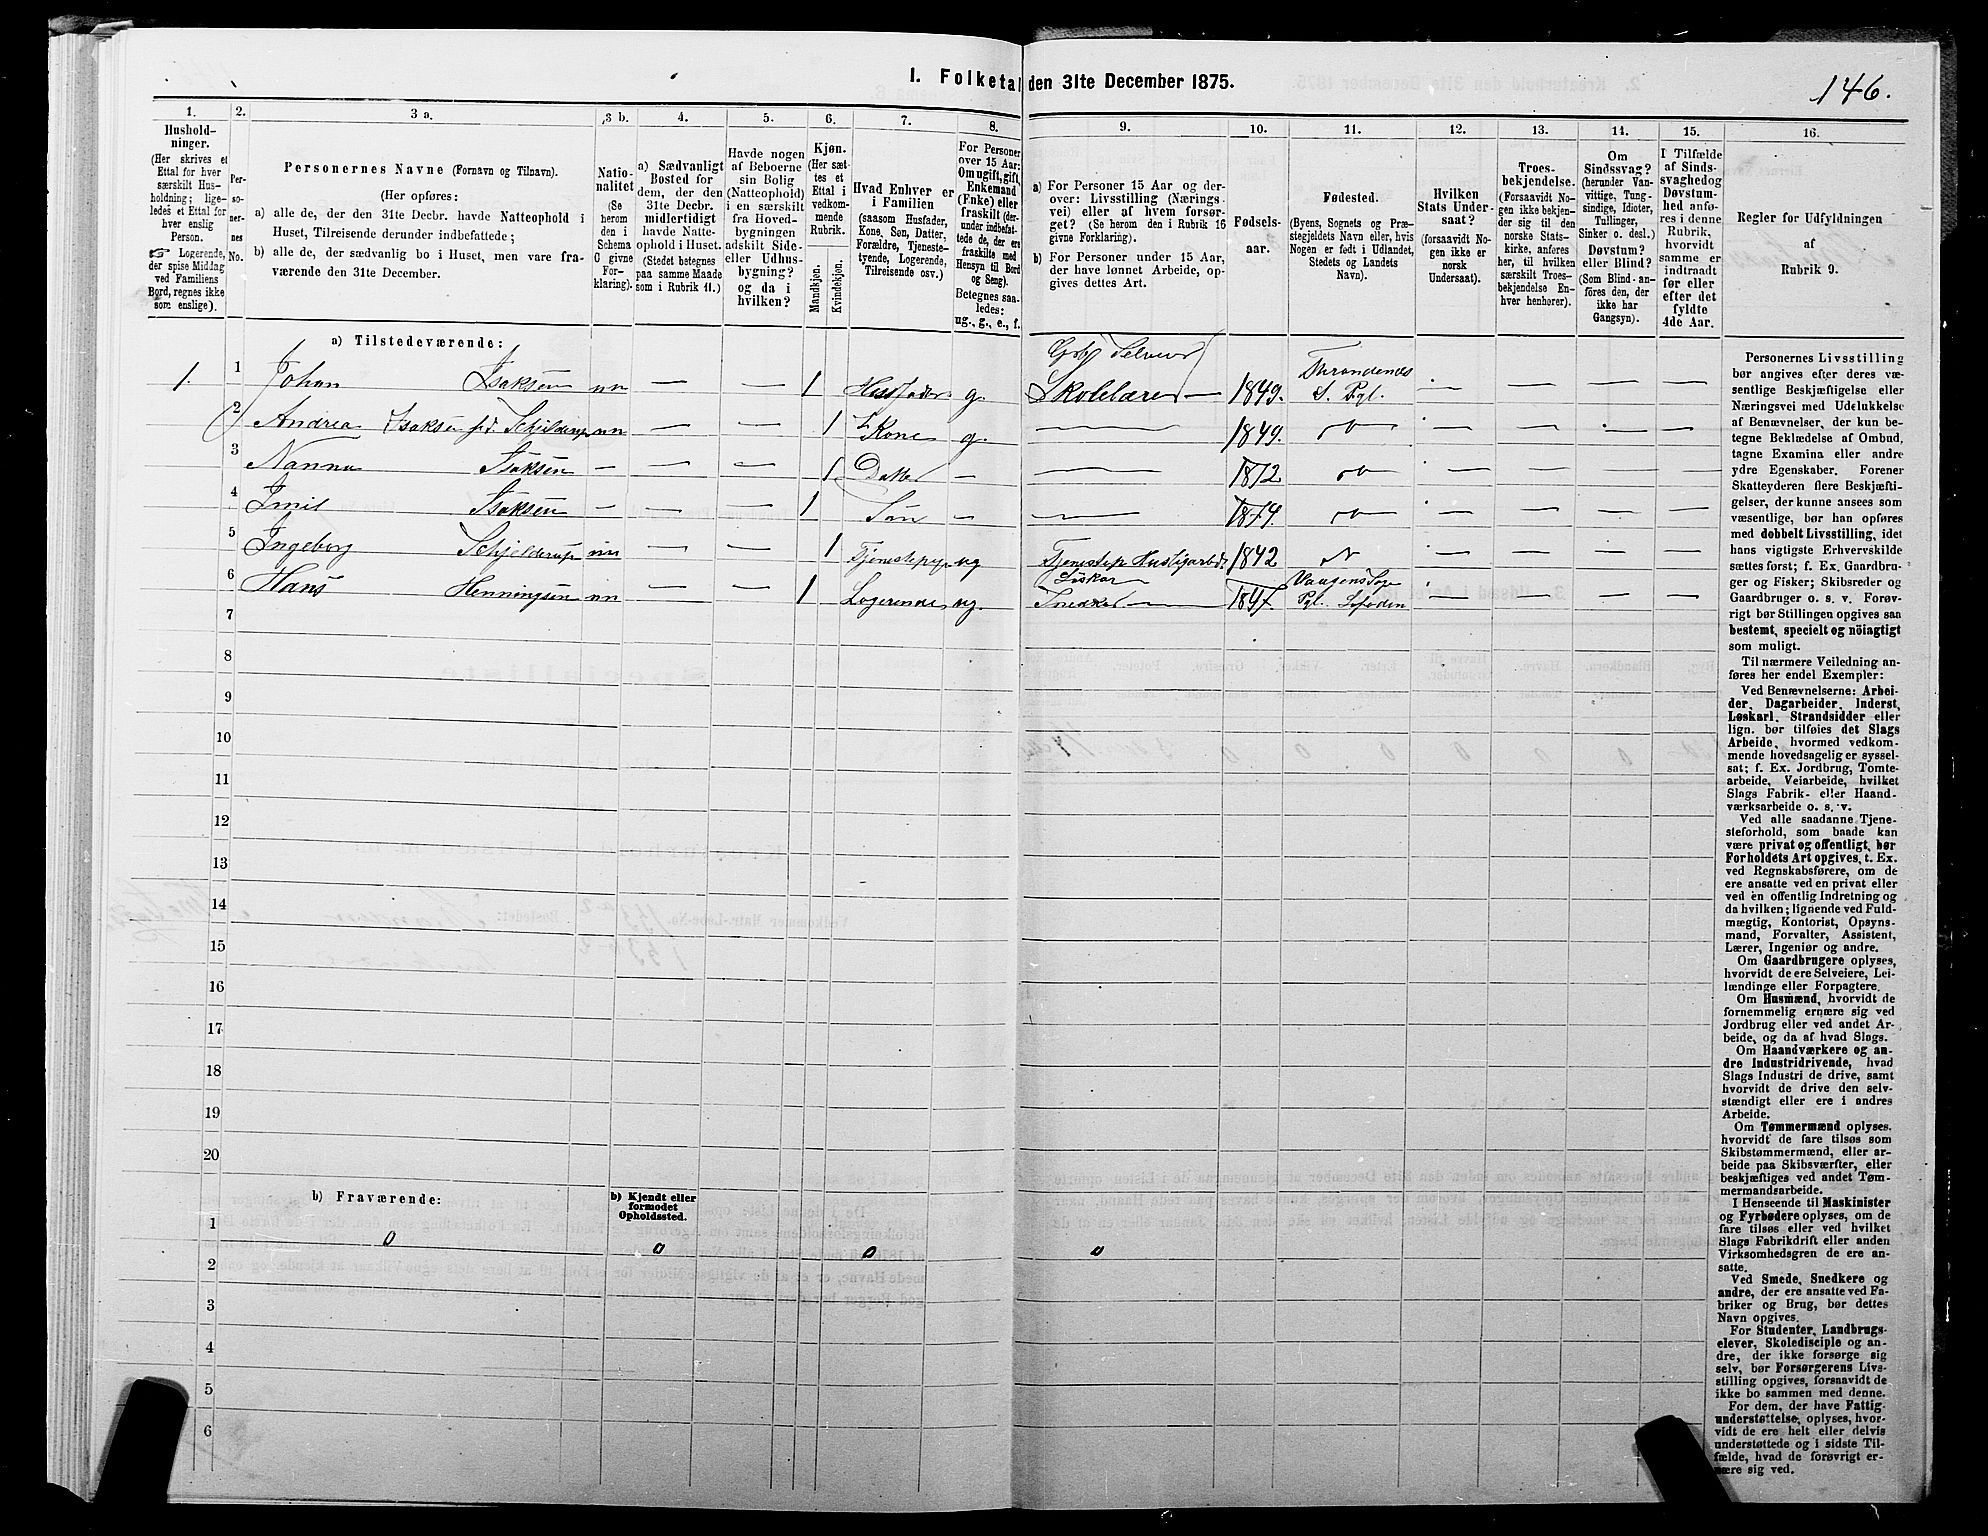 1. Folketal den 31te December 1875.
146.
1. Husholdninger. (Her skrives et Ettal for hver særskilt Husholdning; ligeledes et Ettal for hver enslig Person. ☞ Logerende, der spise Middag ved Familiens Bord, regnes ikke som enslige).
2. Personernes No.
3 a. Personernes Navne (Fornavn og Tilnavn).
(Her opføres:
a) alle de, der den 31te Decbr. havde Natteophold i Huset, Tilreisende derunder indbefattede;
b) alle de, der sædvanlig bo i Huset, men vare fraværende den 31te December.
3 b. Nationalitet (Se herom den i Schema C givne Forklaring).
4. a) Sædvanligt Bosted for dem, der den 31te Decbr. midlertidigt havde Natteophold i Huset. (Stedet betegnes paa samme Maade som i Rubrik 11.)
5. Havde nogen af Beboerne sin Bolig (Natteophold) i en særskilt fra Hovedbygningen adskilt Side- eller Udhusbygning? og da i hvilken?
6. Kjøn. (Her sættes et Ettal i vedkommende Rubrik. Mandkjøn. Kvindekjøn.
7. Hvad Enhver er i Familien (saasom Husfader, Kone, Søn, Datter, Forældre, Tjenestetyende, Logerende, Tilreisende osv.)
8. For Personer over 15 Aar: Om ugift, gift, Enkemand (Enke) eller fraskilt (derunder indbefattede de, der ere fraskilte med Hensyn til Bord og Seng). Betegnes saaledes: ug., g., e., f.
9. a) For Personer 15 Aar og derover: Livsstilling (Næringsvei) eller af hvem forsørget? (Se herom den i Rubrik 16 givne Forklaring).
b) For Personer under 15 Aar, der have lønnet Arbeide, opgives dettes Art.
10. Fødselsaar.
11. Fødested. (Byens, Sognets og Præstegjeldets Navn eller, hvis Nogen er født i Udlandet, Stedets og Landets Navn).
12. Hvilken Stats Undersaat? (forsaavidt Nogen ikke er norsk Undersaat).
13. Troesbekjendelse. (Forsaavidt Nogen ikke bekjender sig til den norske Statskirke, anføres her, til hvilken særskilt Troesbekjendelse Enhver henhører).
14. Om Sindssvag? (herunder Vanvittige, Tungsindige, Idioter, Tullinger, Sinker o. desl.) Døvstum? eller Blind? (Som Blind anføres den, der ikke har Gangsyn).
15. I Tilfælde af Sindssvaghed og Døvstumhed anføres i denne Rubrik, hvorvidt samme er indtraadt før eller efter det fyldte 4de Aar.
16. Regler for Udfyldningen af Rubrik 9.
a) Tilstedeværende:
1. 1 Johan Isaksen nn — — 1 Husfader g. Gbr Selveier Skolelærer — 1849. Throndenæs S. Pgl. — — — —
2 Andrea Isaksen fd. Schjelderup nn — — 1 Kone g. — 1849. — — — —
3 Nanna Isaksen — — — 1 Datter — — 1872 — — — —
4 Emil Isaksen — — — 1 Søn — — 1874. — — — —
5 Ingeborg Schjelderup nn — — 1 Tjenestepige ug 1842 — — — —
6 Hans Henningsen nn — — 1 Logerende ug. Fisker Snedker — 1847. Vaagens Sogn Pgl. Lofoden — — — —
7
8
9
10
11
12
13
14
15
16
17
18
19
20
b) Fraværende:
b) Kjendt eller formodet Opholdssted.
1
0 0 0 0
2
3
4
5
6
Personernes Livsstilling
bør angives efter deres væsentlige
Beskjæftigelse eller
Næringsvei med Udelukkelse
af Benævnelser, der kun betegne
Beklædelse af Ombud,
tagne Examina eller andre
ydre Egenskaber. Forener
Skatteyderen flere Beskjæftigelser,
der kunne ansees som
væsentlige, bør han opføres
med dobbelt Livsstilling, idet
hans vigtigste Erhvervskilde
sættes forst; f. Ex. Gaardbruger
og Fisker; Skibsreder og
Gaardbruger o. s. v. Forøvrigt
bør Stillingen opgives saa
bestemt, specielt og nöiagtigt
som muligt.
Til nærmere Veiledning anføres
her endel Exempler:
Ved Benævnelserne: Arbeider,
Dagarbeider, Inderst,
Løskarl, Strandsidder eller
lign. bør tilføies det Slags
Arbeide, hvormed vedkommende
hovedsagelig er sysselsat;
f. Ex. Jordbrug, Tomtearbeide,
Veiarbeide, hvilket
Slags Fabrik- eller Haandværksarbeide
o. s. v.
Ved alle saadanne Tjenesteforhold,
som baade kan
være privat og offentligt, bør
Forholdets Art opgives, t. Ex.
ved Regnskabsførere, om de
ere ansatte ved en privat eller
ved en offentlig Indretning og
da hvilken; lignende ved Fuldmægtig,
Kontorist, Opsynsmand,
Forvalter, Assistent,
Lærer, Ingeniør og andre.
Om Gaardbrugere oplyses,
hvorvidt de ere Selveiere, Leilændinge
eller Forpagtere.
Om Husmænd, hvorvidt de
fornemmelig ernære sig ved
Jordbrug eller ved andet Arbeide,
og da af hvad Slags.
Om Haandværkere og andre
Industridrivende, hvad
Slags Industri de drive, samt
hvorvidt de drive den selvstændigt
eller ere i andres
Arbeide.
Om Tømmermænd oplyses,
hvorvidt de fare tilsøs som
Skibstømmermænd, eller arbeide
paa Skibsværfter, eller
beskjæftiges ved andet Tømmermandsarbeide.
I Henseende til Maskinister
og Fyrbødere oplyses, om de
fare tilsøs eller ved hvilket
Slags Fabrikdrift eller anden
Virksomhedsgren de ere ansatte.
Ved Smede, Snedkere og
andre, der ere ansatte ved Fabriker
og Brug, bør dettes
Navn opgives.
For Studenter, Landbrugselever,
Skoledisciple og andre,
der ikke forsørge sig
selv, bør Forsørgerens Livsstilling
opgives, forsaavidt de
ikke bo sammen med denne.
For dem, der have Fattigunderstøttelse,
oplyses, hvorvidt
de ere helt eller delvis
understøttede og i sidste Tilfælde,
hvad de forøvrigt ernære
sig ved.